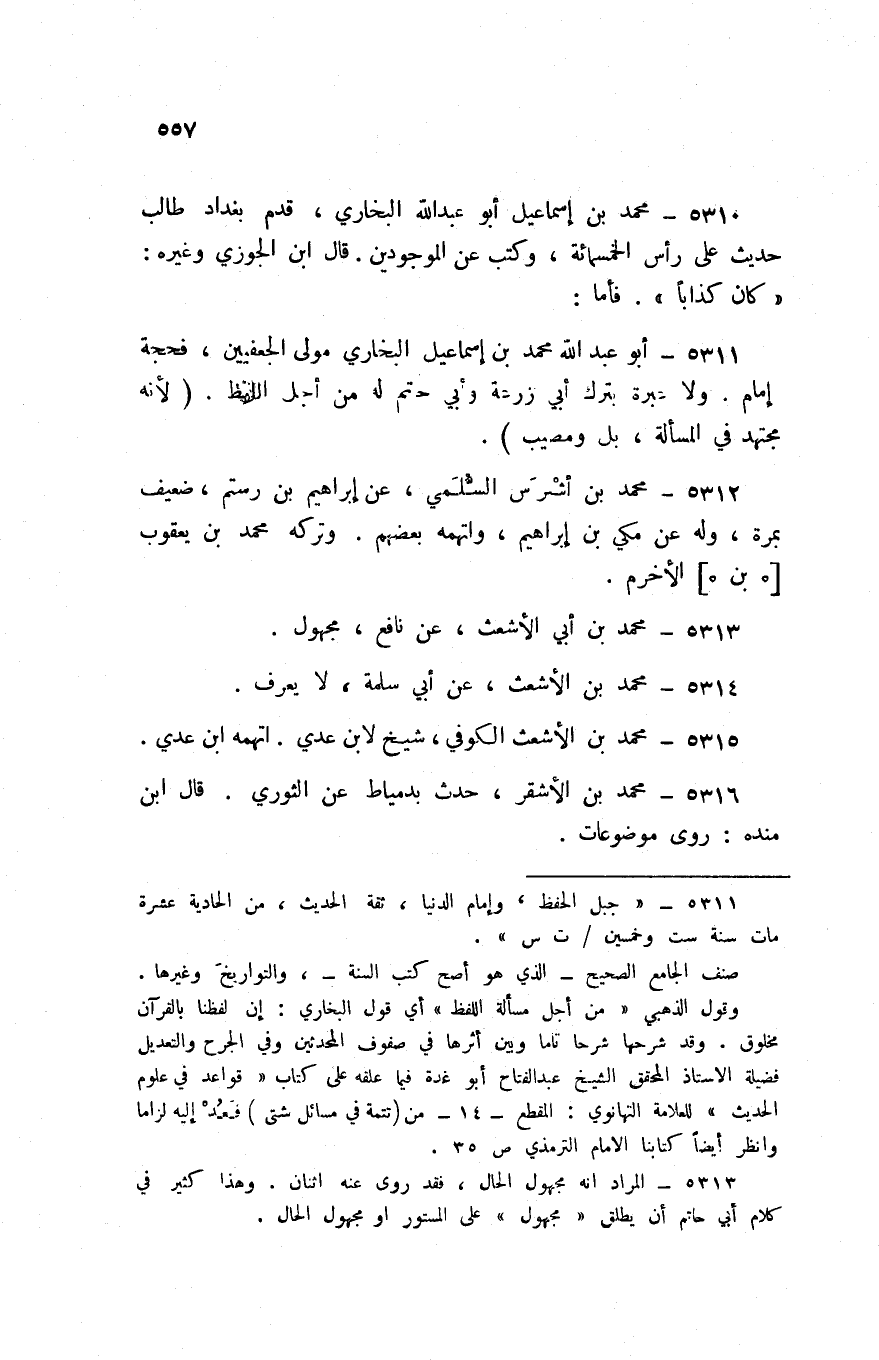 ٥٥٧
٥٣١٠ ــ محمد بن إسماعيل أبو عبدالله البخاري ، قدم بغداد طالب
حديث على رأس الخمسمائة ، وكتب عن الموجودين . قال ابن الجوزي وغيره :
« كان كذاباً » . فأما :
٥٣١١ ــ أبو عبد الله محمد بن إسماعيل البخاري مولى الجعفيين ، فحجة
إمام . ولا عبرة بترك أبي زرعة وأبي حاتم له من أجل اللفظ . ( لأنه
مجتهد في المسألة ، بل ومصيب ) .
٥٣١٢ ــ محمد بن أشْرَس السُّلَمي ، عن إبراهيم بن رستم ، ضعيف
بمرة ، وله عن مكي بن إبراهيم ، واتهمه بعضهم . وتركه محمد بن يعقوب
[ ٥ بن ٥ ] الأخرم .
٥٣١٣ ــ محمد بن أبي الأشعث ، عن نافع ، مجهول .
٥٣١٤ ــ محمد بن الأشعث ، عن أبي سلمة ، لا يعرف .
٥٣١٥ ــ محمد بن الأشعث الكوفي ، شيخ لابن عدي . اتهمه ابن عدي .
٥٣١٦ ــ محمد بن الأشقر ، حدث بدمياط عن الثوري . قال ابن
منده : روى موضوعات .
٥٣١١ ــ « جبل الحفظ ، وإمام الدنيا ، ثقة الحديث ، من الحادية عشرة
مات سنة ست وخمسين / ت س » .
صنف الجامع الصحيح ــ الذي هو أصح كتب السنة ــ ، والتواريخ وغيرها .
وقول الذهبي « من أجل مسألة اللفظ » أي قول البخاري : إن لفظنا بالقرآن
مخلوق . وقد شرحها شرحا تاما وبين أثرها في صفوف المحدثين وفي الجرح والتعديل
فضيلة الاستاذ المحقق الشيخ عبدالفتاح أبو غدة فيما علقه على كتاب « قواعد في علوم
الحديث » للعلامة التهانوي : المقطع ــ ١٤ ــ من ( تتمة في مسائل شتى ) فَعُدْ إليه لزاما
وانظر أيضاً كتابنا الامام الترمذي ص ٣٥ .
٥٣١٣ ــ المراد انه مجهول الحال ، فقد روى عنه اثنان . وهذا كثير في
كلام أبي حاتم أن يطلق « مجهول » على المستور او مجهول الحال .